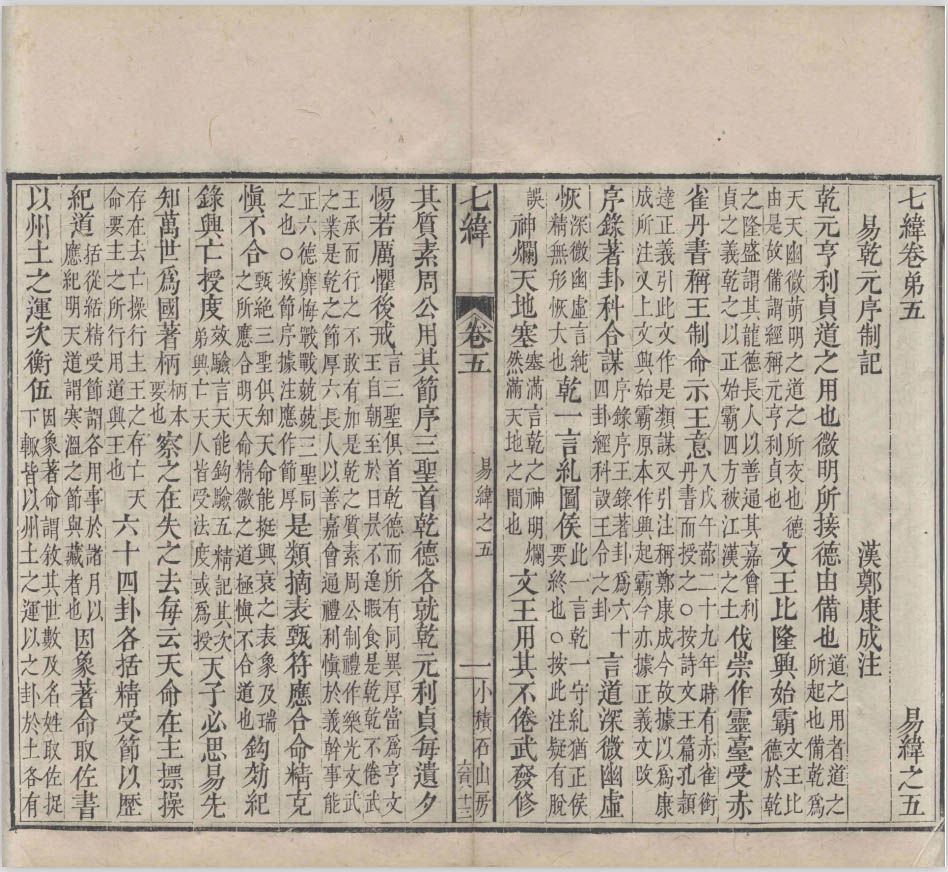 七緯卷弟五　易緯之五
易乾元序制記　漢鄭康成注
乾元亨利貞道之用也微明所接德由備也道之用者道之所起也備乾爲
天天幽微萌明之道之所夾也德由是故備謂經稱元亨利貞也文王比隆興始霸文王比德於乾
之隆盛謂其龍德長人以善通其嘉會利貞之義乾之以正始霸四方被江漢之土伐崇作靈臺受赤
雀丹書稱王制命示王意入戊午蔀二十九年時有赤雀銜丹書而授之○按詩文王篇孔頴
達正義引此文作是類謀又引注稱鄭康成今故據以爲康成所注又上文興始霸原本作興起霸今亦據正義文改
序錄著卦科合謀序錄序王錄著卦爲六十四卦經科設王令之卦言道深微幽虛
恢深微幽虛言純精無形恢大也乾一言糺圖俟此一言乾一守糺猶正俟要終也○按此注疑有脫
誤神爛天地塞塞滿言乾之神明爛然滿天地之間也文王用其不倦武發修
七緯　卷五　易緯之五　一　小積石山房　六百十三
其質素周公用其節序三聖首乾德各就乾元利貞每遺夕
惕若厲懼後戒言三聖俱首乾德而所有同異厚當爲亨文王自朝至於日昃不遑暇食是乾乾不倦武
王承而行之不敢有加是乾之質素周公制禮作樂光文武之業是乾之節厚六長人以之善嘉會通禮利愼於義幹事能
正六德靡悔戰戰兢兢三聖同之也○按節序據注應作節厚是類摘表甄符應合命精克
愼不合甄絕三聖俱知天命能挺興衰之表象及瑞之所應合明天命精微之道極愼不合道也鈎効紀
錄興亡授度效驗言天能鈎驗五精記其次弟興亡天人皆受法度或爲授天子必思易先
知萬世爲國著柄柄本要也察之在失之去每云天命在主摽操
存在去亡操行主王之存亡天命要主之所行用道興王也六十四卦各括精受節以歷
紀道括從絡精受節謂各用事於諸月以應紀明天道謂寒溫之節與藏者也因象著命取佐書
以州土之運次衡伍因象著命謂敘其世數及名姓取佐捉下輙皆以州土之運以之卦於土各有